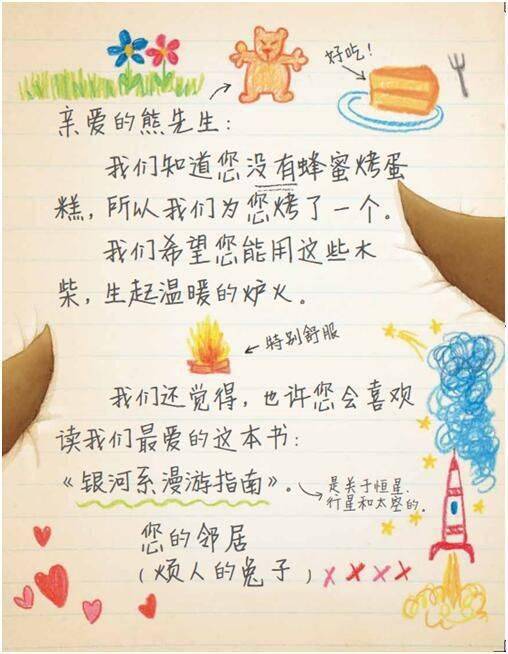 好吃！
亲爱的熊先生：
我们知道您没有蜂蜜烤蛋
糕，所以我们为您烤了一个。
我们希望您能用这些木
柴，生起温暖的炉火。
特别舒服
我们还觉得，也许您会喜欢
读我们最爱的这本书：
《银河系漫游指南》。
是关于恒星、
行星和太空的。
您的邻居
（烦人的兔子）xxxx